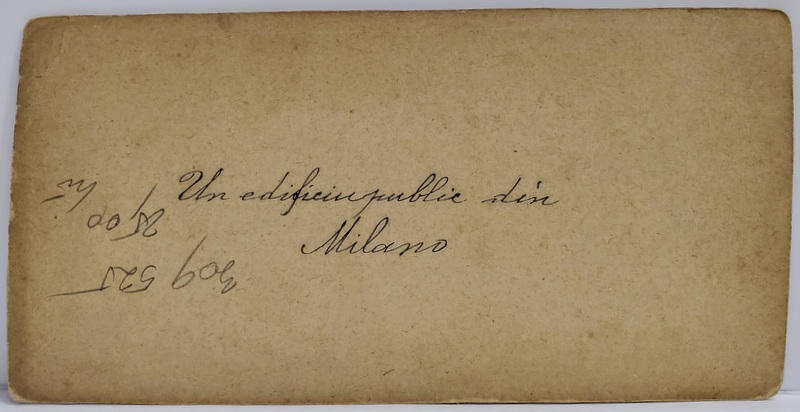 Un edificiu public din
Milano
309 525